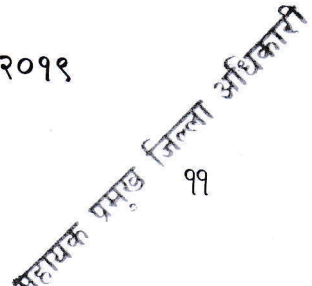 २०१९
सहायक प्रमुख जिल्ला अधिकारी
११